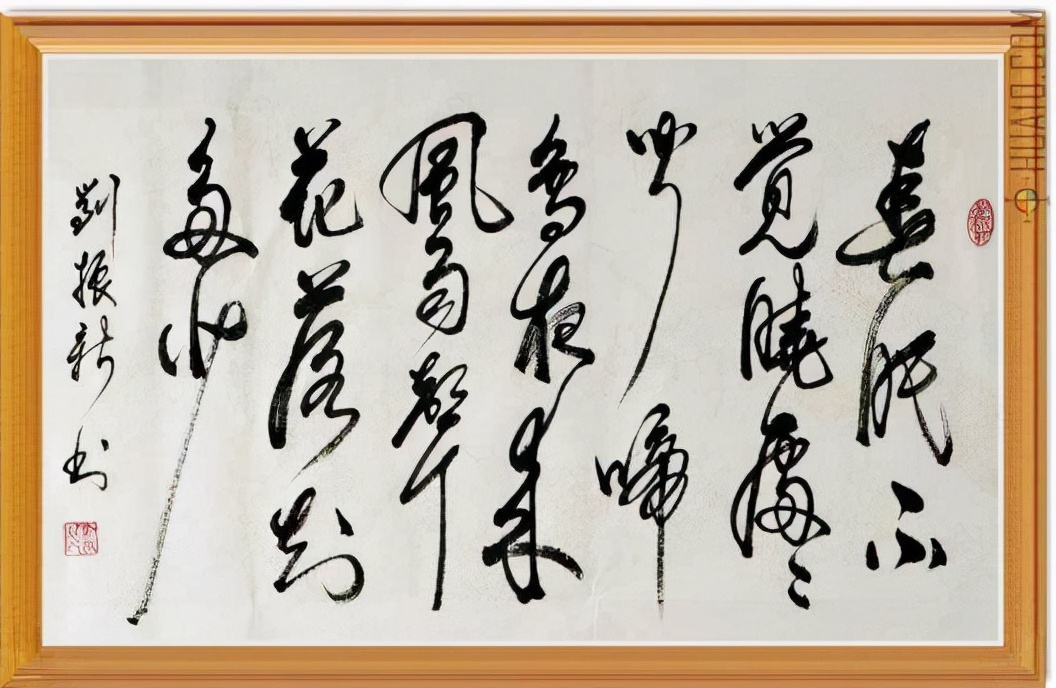 春眠不
覺曉處々
聞啼
鳥夜来
風雨聲
花落知
多少
劉振新书